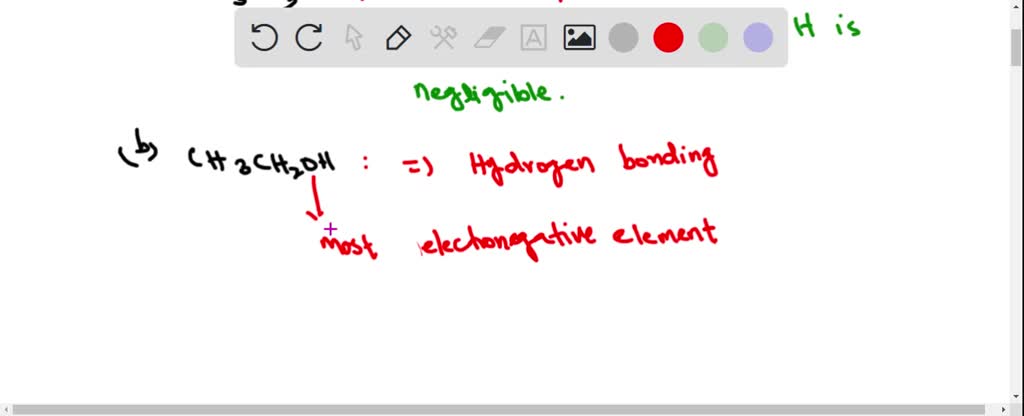 H is
negligible.
(b) CH3CH2OH : => Hydrogen bonding
most electronegative element